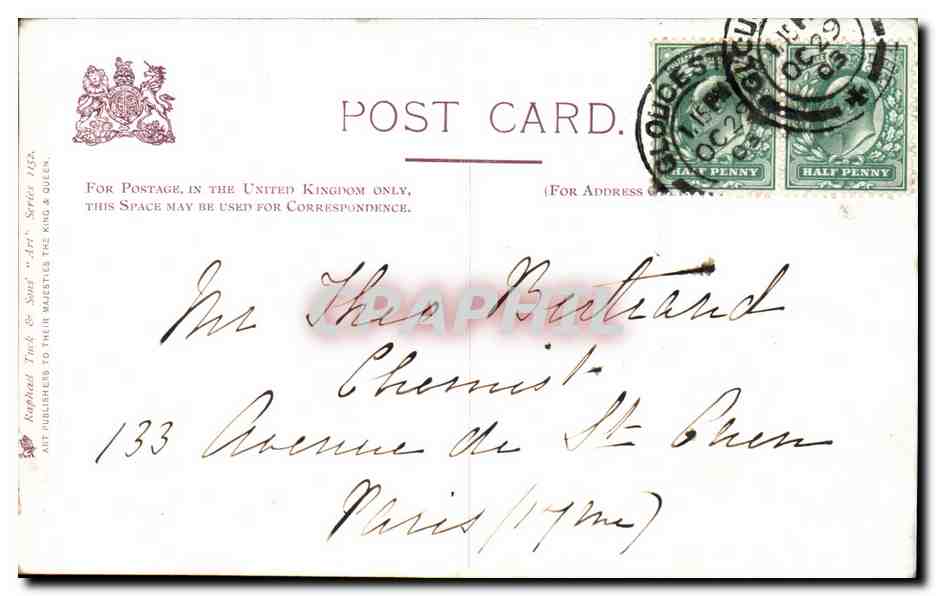 POST CARD.
FOR POSTAGE, IN THE UNITED KINGDOM ONLY,
THIS SPACE MAY BE USED FOR CORRESPONDENCE.
(FOR ADDRESS
HALF PENNY
HALF PENNY
GLOUCEST
1.15 PM
OC 29
03
OC 29
03
Raphael Tuck & Sons' "Art" Series 1152.
ART PUBLISHERS TO THEIR MAJESTIES THE KING & QUEEN.
CPAPHIL
Mr Theo Bertrand
Chemist
133 Avenue de St Ouen
Paris (17me)